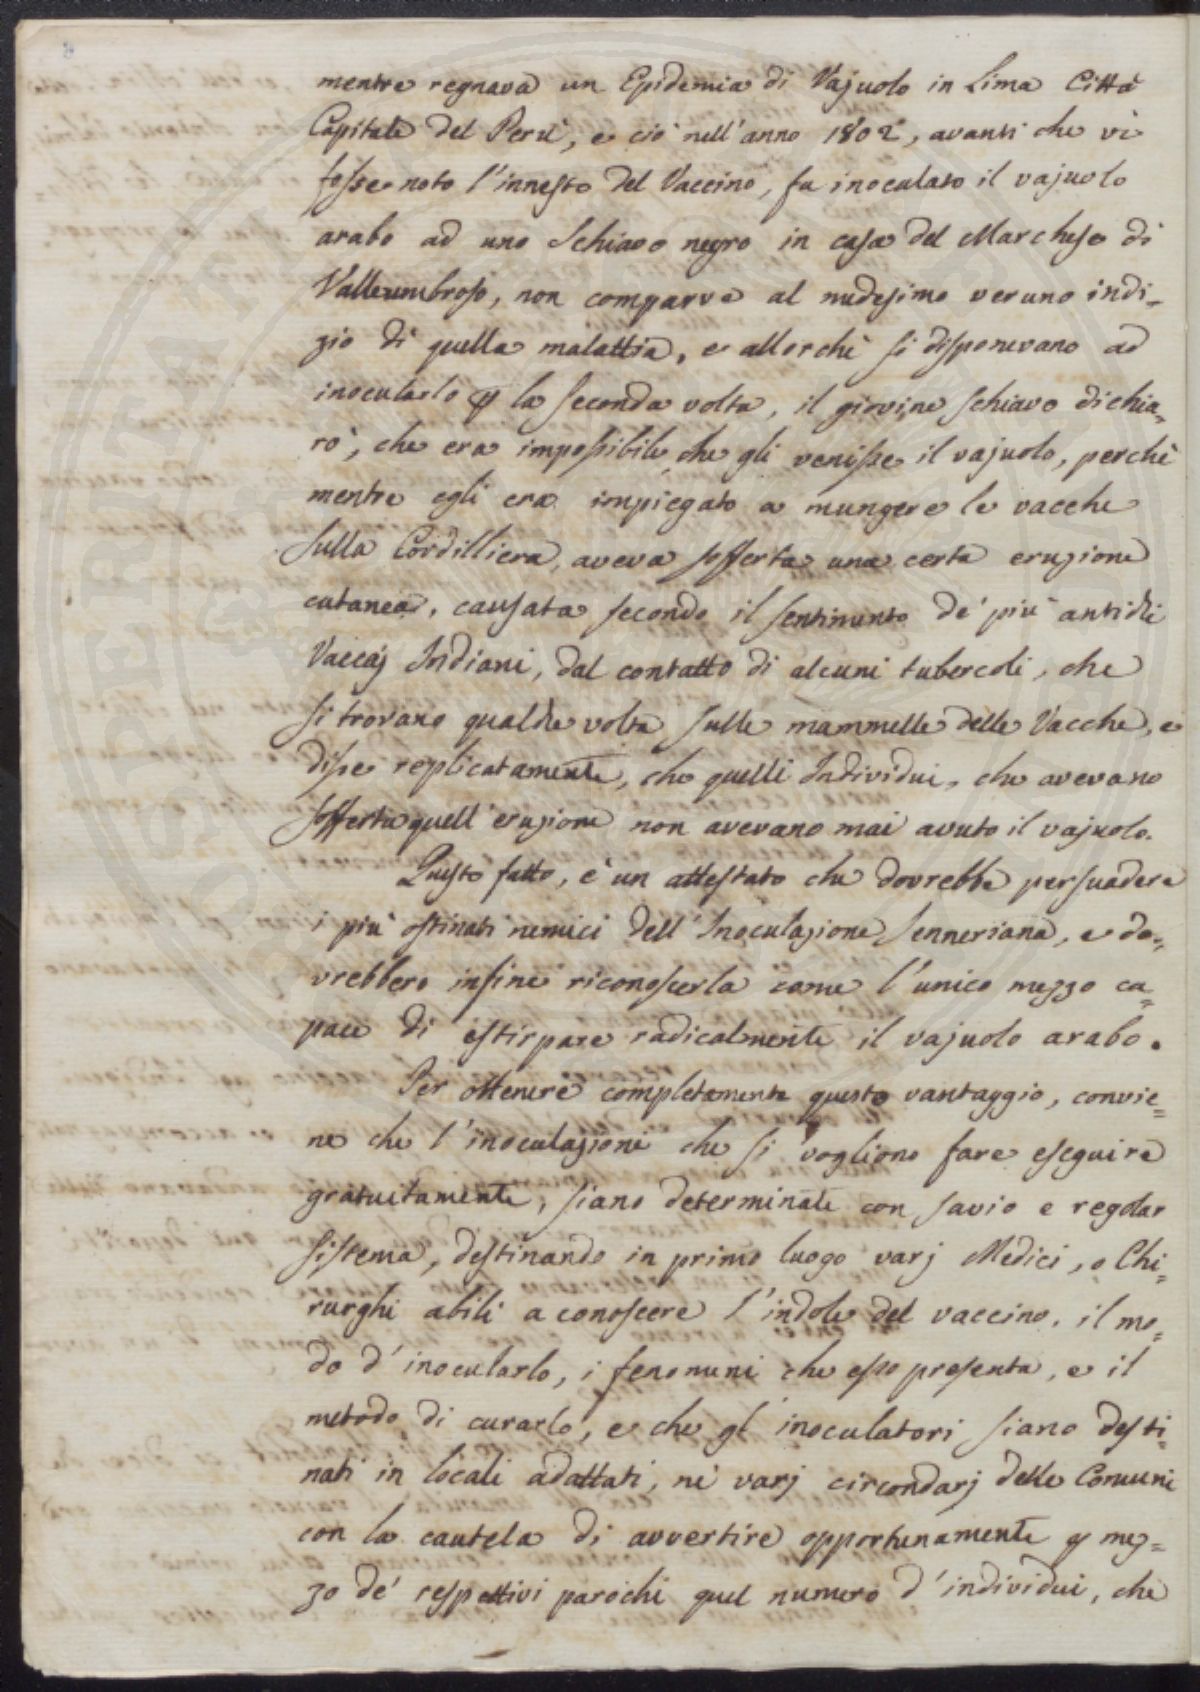 mentre regnava un Epidemia di Vajuolo in Lima Città
Capitale del Perù, e ciò nell'anno 1802, avanti che vi
fosse noto l'innesto del Vaccino, fu inoculato il vajuolo
arabo ad uno Schiavo negro in casa del Marchese di
Valleumbroso, non comparve al medesimo veruno indi=
zio di quella malattia, e allorchè si disponevano ad
inocularlo p la seconda volta, il giovine schiavo dichia=
rò, che era impossibile che gli venisse il vajuolo, perchè
mentre egli era impiegato a mungere le vacche
sulla Cordilliera, aveva sofferta una certa eruzione
cutanea, causata secondo il sentimento de' più antichi
Vaccaj Indiani, dal contatto di alcuni tubercoli, che
si trovano qualche volta sulle mammelle delle Vacche, e
disse replicatamente, che quelli Individui, che avevano
sofferta quell'eruzione non avevano mai avuto il vajuolo.
Questo fatto, è un attestato che dovrebbe persuadere
i più ostinati nemici dell'Inoculazione Jenneriana, e do=
vrebbero infine riconoscerla come l'unico mezzo ca=
pace di estirpare radicalmente il vajuolo arabo.
Per ottenere completamente questo vantaggio, convie=
ne che l'inoculazioni che si vogliono fare eseguire
gratuitamente, siano determinate con savio e regolar
sistema, destinando in primo luogo varj Medici, o Chi=
rurghi abili a conoscere l'indole del vaccino, il mo=
do d'inocularlo, i fenomeni che esso presenta, e il
metodo di curarlo, e che gl'inoculatori siano desti=
nati in locali adattati, nè varj circondarj delle Comuni
con la cautela di avvertire opportunamente p mez=
zo de' respettivi parochi quel numero d'individui, che